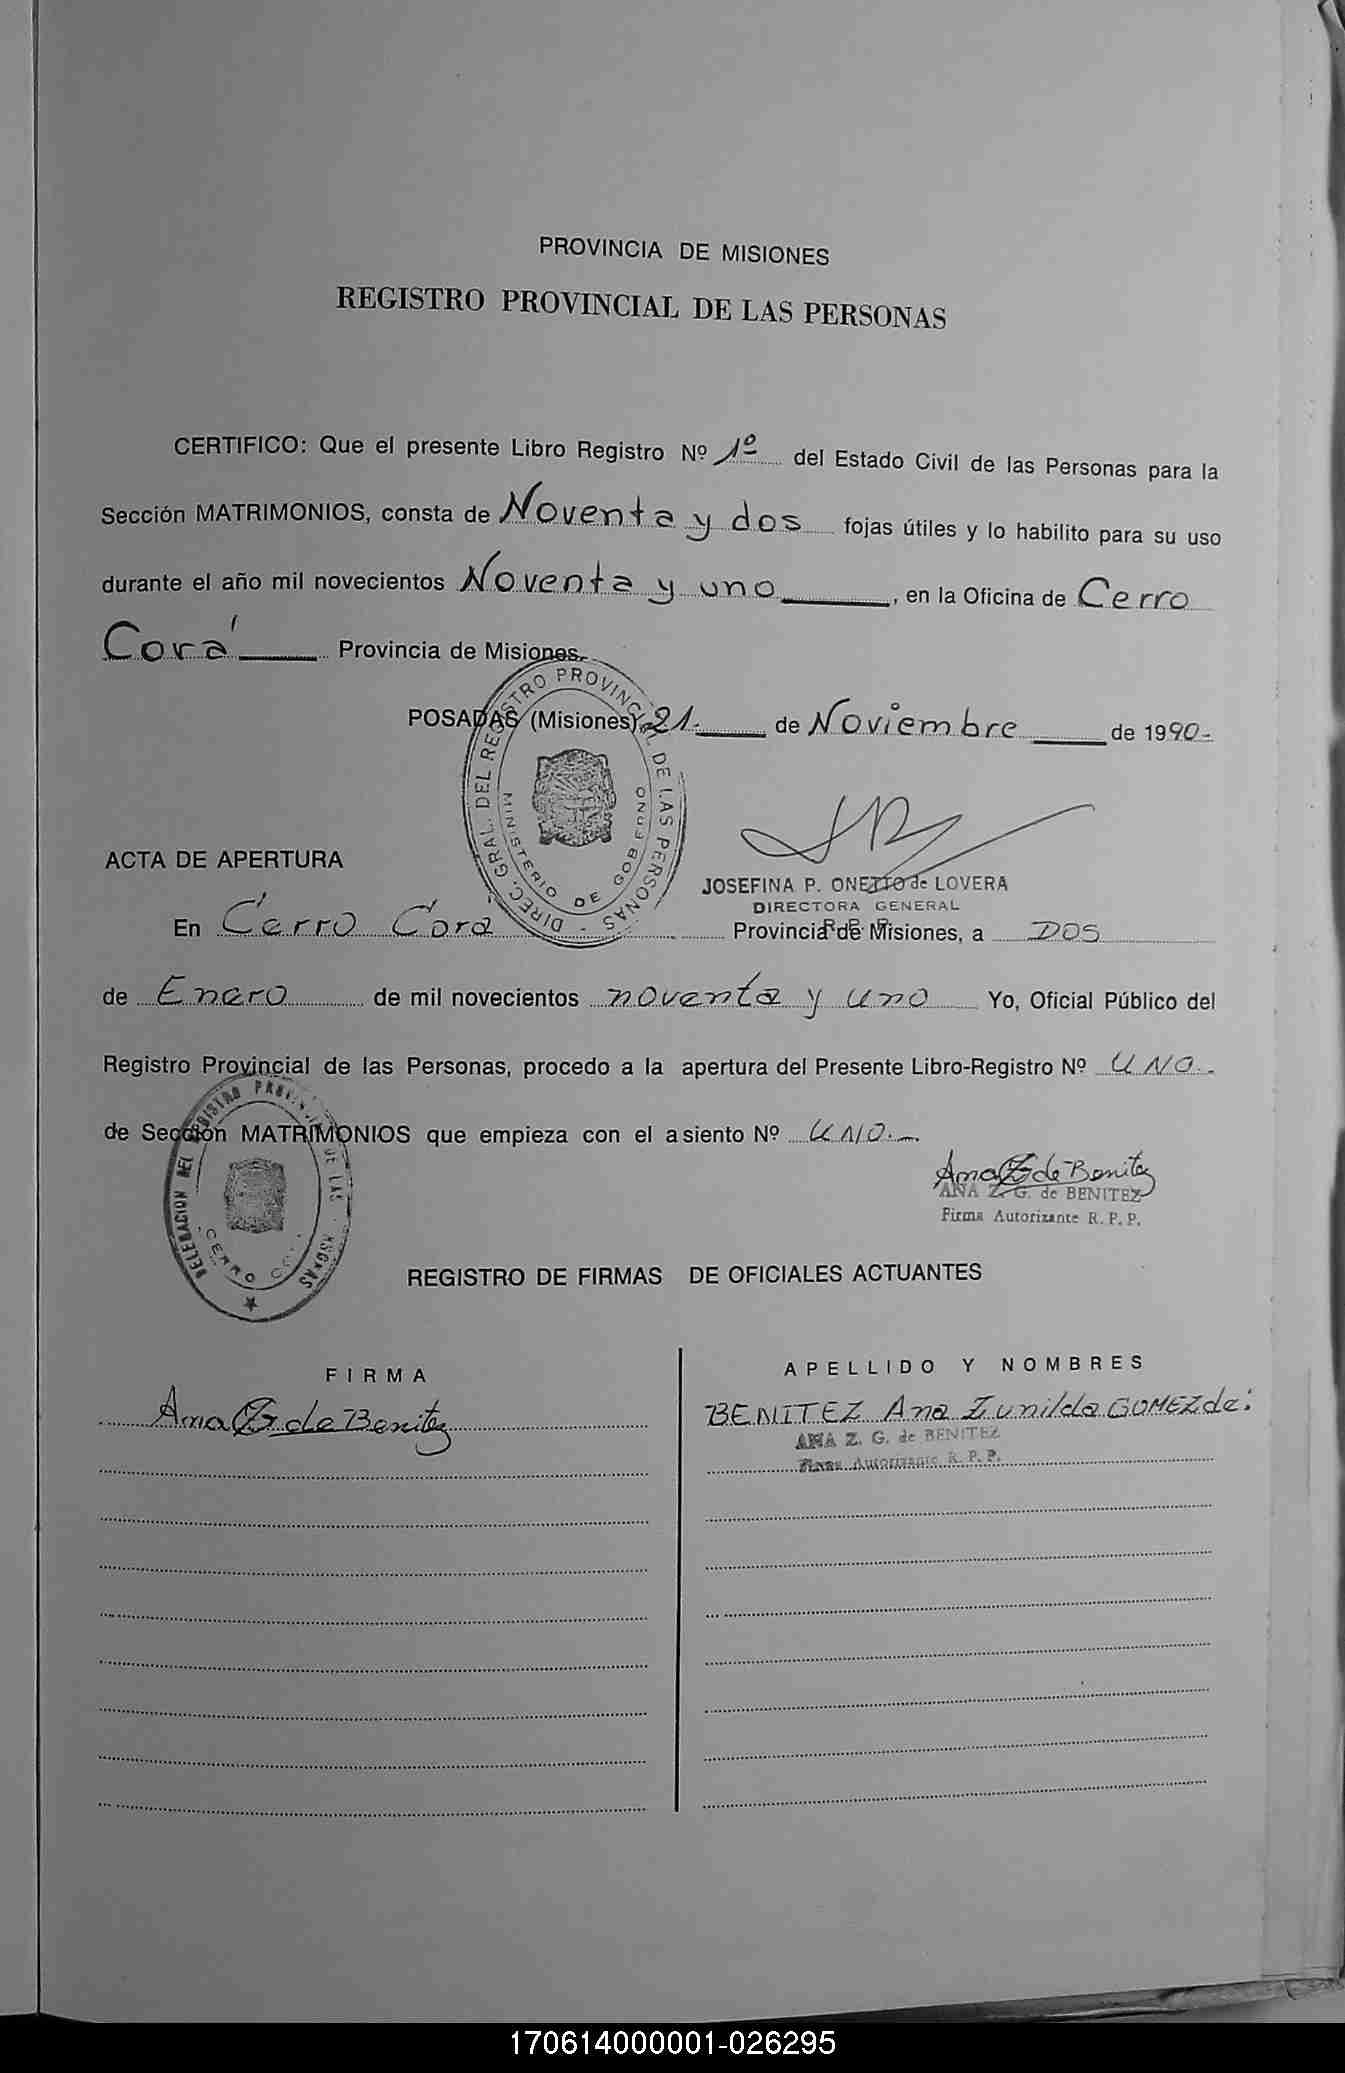 PROVINCIA DE MISIONES
REGISTRO PROVINCIAL DE LAS PERSONAS
CERTIFICO: Que el presente Libro Registro Nº 1º del Estado Civil de las Personas para la
Sección MATRIMONIOS, consta de Noventa y dos fojas útiles y lo habilito para su uso
durante el año mil novecientos Noventa y uno, en la Oficina de Cerro
Corá Provincia de Misiones.
POSADAS (Misiones) 21 de Noviembre de 1990-
DIREC. GRAL. DEL REGISTRO PROVINCIAL DE LAS PERSONAS -
MINISTERIO DE GOBIERNO
JOSEFINA P. ONETTO de LOVERA
DIRECTORA GENERAL
R. P. P.
ACTA DE APERTURA
En Cerro Corá Provincia de Misiones, a DOS
de Enero de mil novecientos noventa y uno Yo, Oficial Público del
Registro Provincial de las Personas, procedo a la apertura del Presente Libro-Registro Nº UNO.-
de Sección MATRIMONIOS que empieza con el asiento Nº UNO.-
DELEGACION DEL REGISTRO PROVINCIAL DE LAS PERSONAS
CERRO CORA
Ana Z G de Benitez
ANA Z. G. de BENITEZ
Firma Autorizante R. P. P.
REGISTRO DE FIRMAS DE OFICIALES ACTUANTES
FIRMA
APELLIDO Y NOMBRES
Ana Z G de Benitez
BENITEZ Ana Zunilda GOMEZ de:
ANA Z. G. de BENITEZ
Firma Autorizante R. P. P.
170614000001-026295